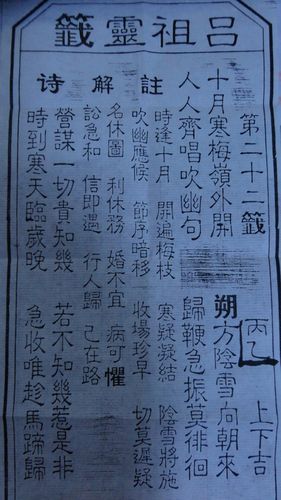 呂祖靈籤
第二十二籤 丙乙 上下吉
十月寒梅嶺外開 朔方陰雪向朝來
人人齊唱吹幽句 歸鞭急振莫徘徊
註解诗
時逢十月 開遍梅枝 寒疑凝結 陰雪將施
吹幽應候 節序暗移 收場珍早 切莫遲疑
名休圖 利休務 婚不宜 病可懼
訟急和 信即遇 行人歸 己在路
營謀一切貴知幾 若不知幾惹是非
時到寒天臨歲晚 急收唯趁馬蹄歸